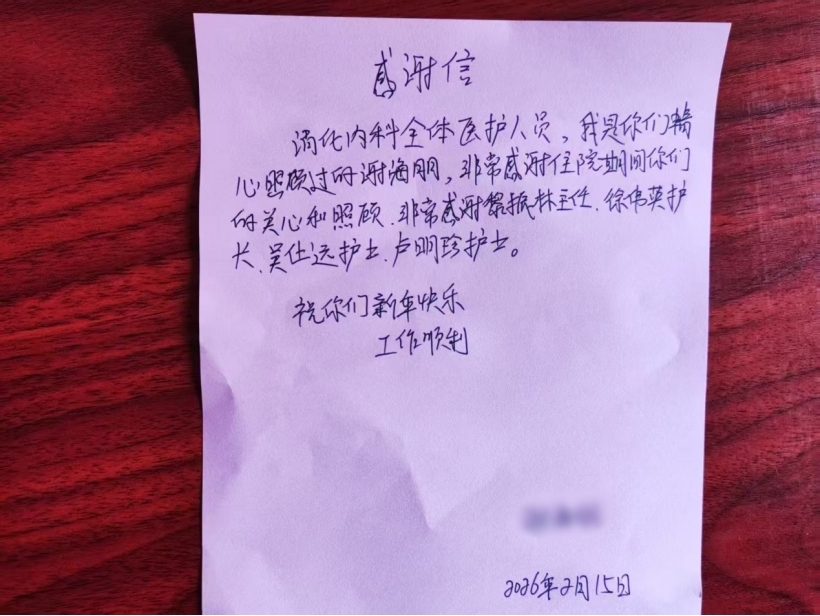 感谢信
消化内科全体医护人员，我是你们精
心照顾过的谢海朋，非常感谢住院期间你们
的关心和照顾、非常感谢黎振林主任、徐伟英护
长、吴仕远护士、卢明珍护士。
祝你们新年快乐
工作顺利
2026年2月15日